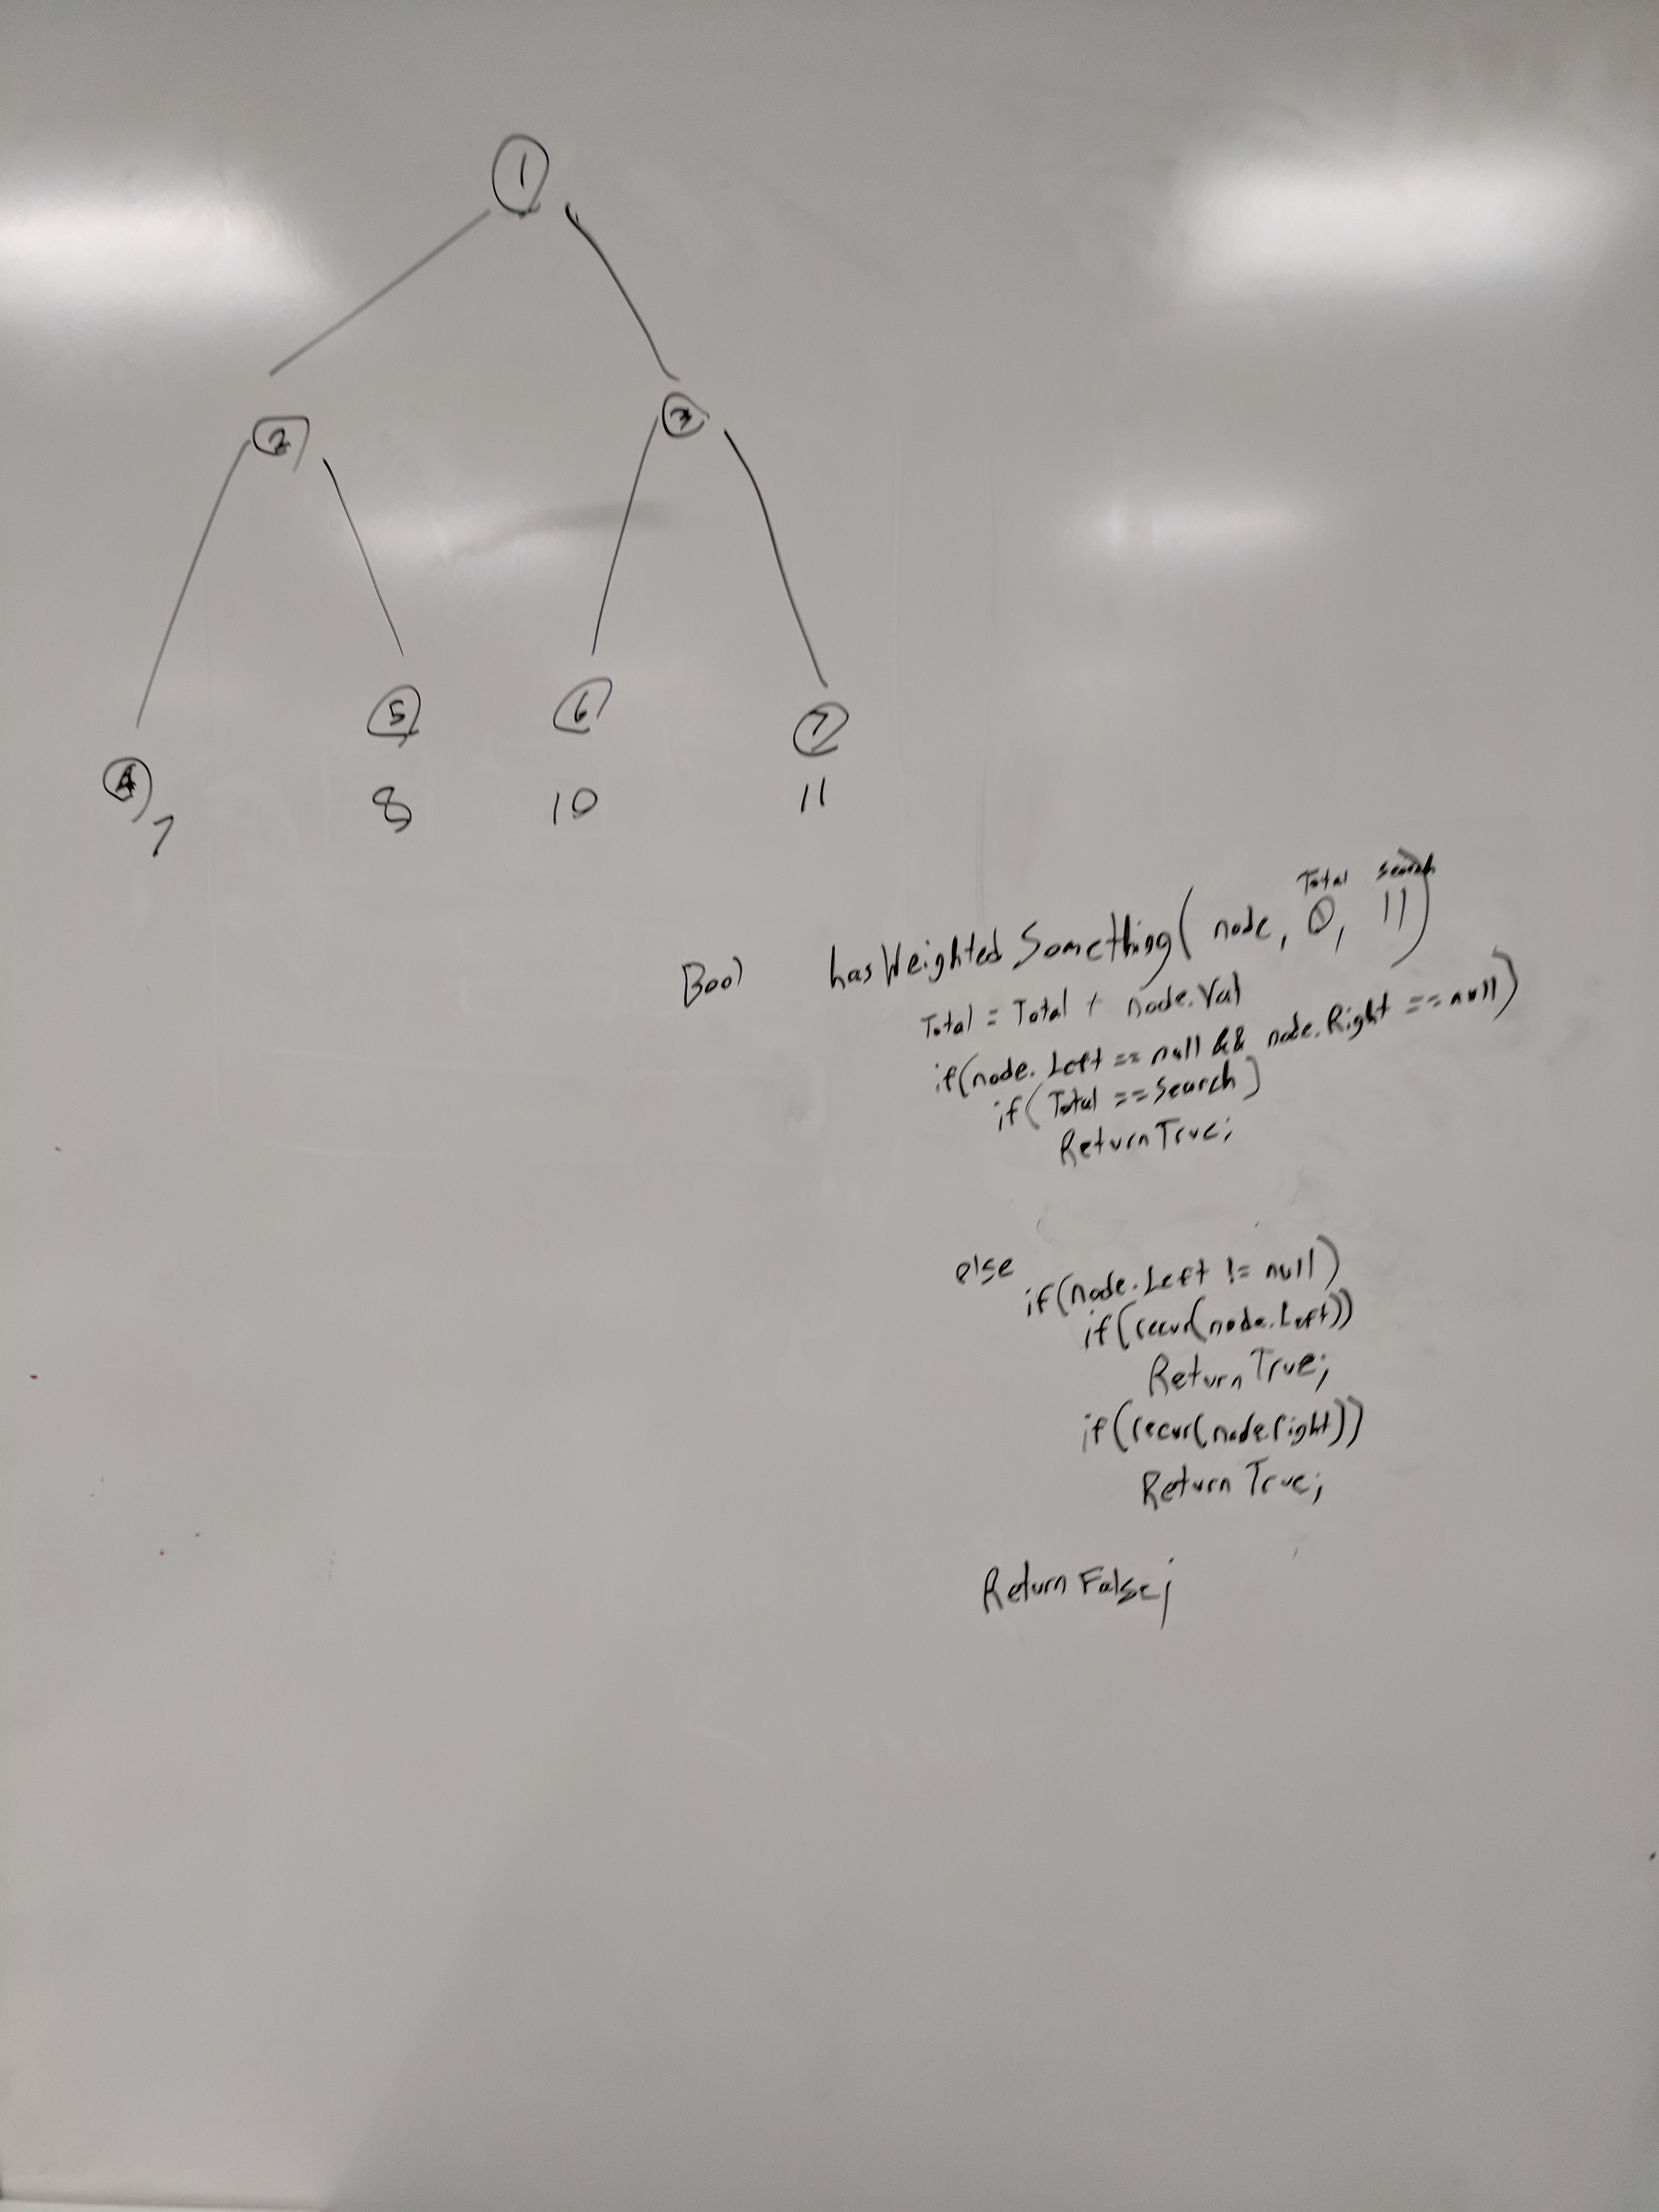 1
2 3
4 5 6 7
7 8 10 11
Total Search
Bool hasWeightedSomething(node, 0, 11)
Total = Total + node.Val
if(node.Left == null && node.Right == null)
if(Total == Search)
Return True;
else
if(node.Left != null)
if(recur(node.Left))
Return True;
if(recur(node.right))
Return True;
Return False;